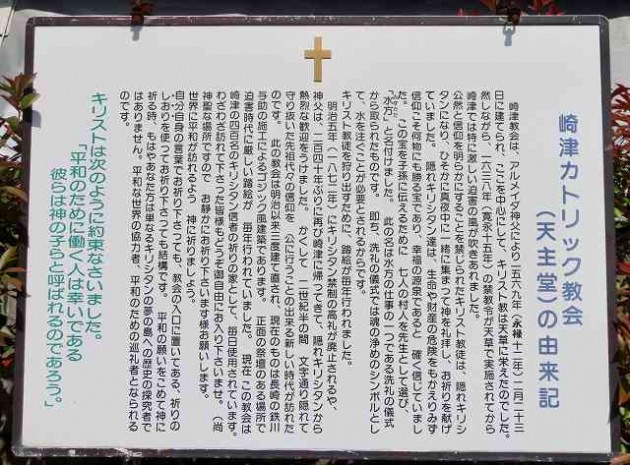 崎津カトリック教会
（天主堂）の由来記
崎津教会は、アルメイダ神父により一五六九年（永禄十二年）二月二十三
日に建てられ、ここを中心にして、キリスト教は天草に栄えたのでした。
然しながら、一六三八年（寛永十五年）の禁教令が天草で実施されてから
崎津では特に激しい迫害の風が吹きあれました。
公然と信仰を明らかにすることを禁じられたキリスト教徒は、隠れキリシ
タンになり、ひそかに真夜中に一緒に集まって神を礼拝し、お祈りを献げ
ていました。隠れキリシタン達は、生命や財産の危険をもかえりみず
信仰こそ何物にも勝る宝であり、幸福の源泉であると 確く信じていまし
た。この宝を子孫に伝えるために 七人の村人を先生として選び、
「水方」と名付けました。此の名は水方の仕事の一つである洗礼の儀式
から取られたものです。即ち、洗礼の儀式では魂の浄めのシンボルとし
て、水を注ぐことが必要とされるからです。
キリスト教徒を狩り出すために、踏絵が毎年行われました。
明治五年（一八七二年）にキリシタン禁制の高札が廃止されるや、
神父は、二百四十年ぶりに再び崎津に帰ってきて、隠れキリシタンから
熱烈な歓迎をうけました。かくして 二世紀半の間 文字通り隠れて
守り抜いた先祖代々の信仰を 公に行うことの出来る新しい時代が訪れた
のです。此の教会は明治以来三度建て直され、現在のものは長崎の鉄川
与助の施工によるゴシック風建築であります。正面の祭壇のある場所で
迫害時代に厳しい踏絵が 毎年行われていました。現在 この教会は
崎津の四百名のキリシタン信者の祈りの家として、毎日使用されています。
わざわざ訪れて下さった皆様もどうぞ御自由にお入り下さいませ。（尚
神聖な場所ですので お静かにお祈り下さいます様お願いします。
世界に平和が訪れるよう 神に祈りましょう。
自分自身の言葉でお祈り下さっても、教会の入口に置いてある、祈りの
しおりを使ってお祈り下さっても結構です。平和の願いをこめて神に
祈る時、もはやあなた方は単なるキリシタンの夢の島への歴史の探究者で
はありません。平和な世界の協力者、平和のための巡礼者となられる
のです。
キリストは次のように約束なさいました。
「平和のために働く人は幸いである
彼らは神の子らと呼ばれるのであろう。」